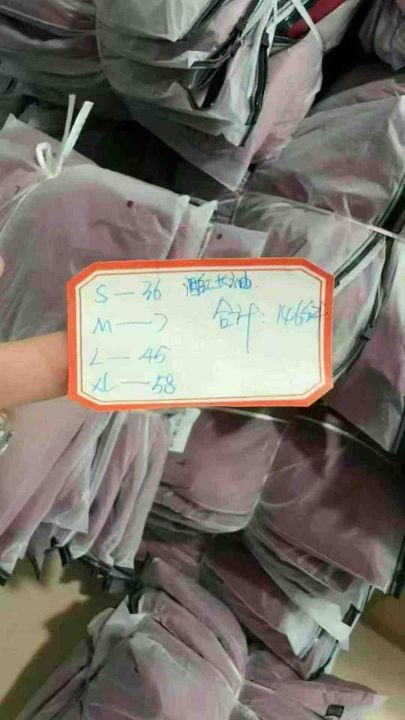 S—36 酒红长油
M—7 合计:146套
L—45
XL—58